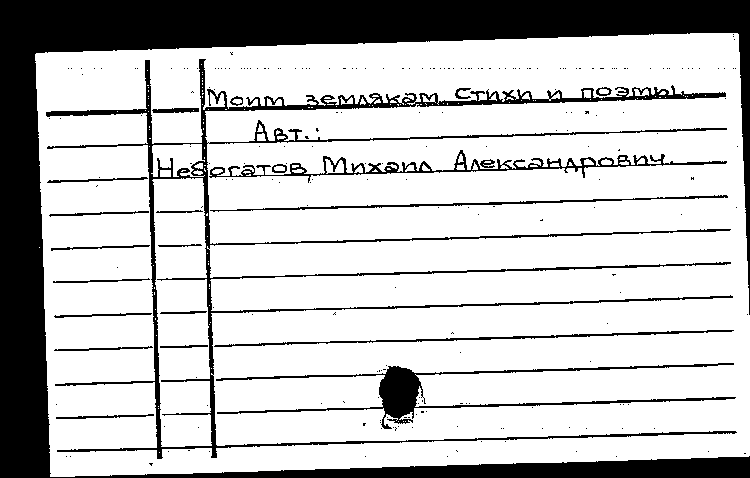 Моим землякам. Стихи и поэмы.
Авт.:
Небогатов, Михаил Александрович.